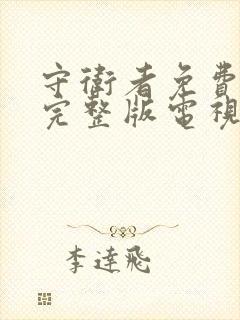 守衛者免費
完整版電視
李達飛